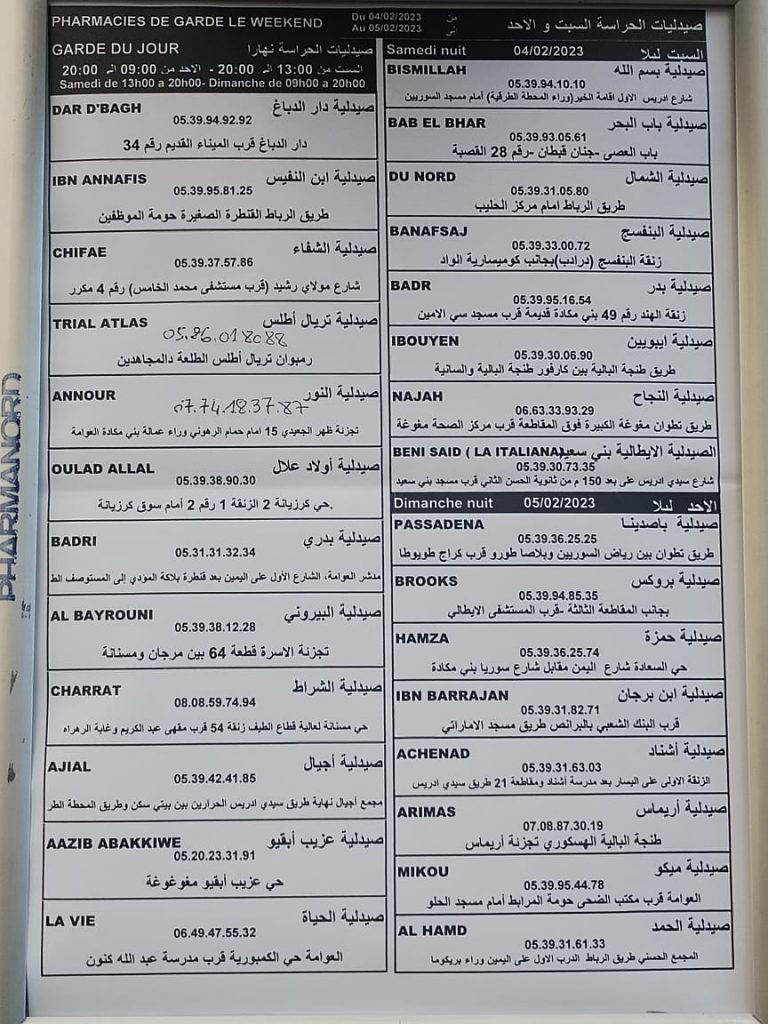 PHARMACIES DE GARDE LE WEEKEND
Du 04/02/2023 من
Au 05/02/2023 الى
صيدليات الحراسة السبت و الاحد
GARDE DU JOUR صيدليات الحراسة نهارا
السبت من 13:00 الى 20:00 - الاحد من 09:00 الى 20:00
Samedi de 13h00 a 20h00- Dimanche de 09h00 a 20h00
DAR D'BAGH صيدلية دار الدباغ
05.39.94.92.92
دار الدباغ قرب الميناء القديم رقم 34
IBN ANNAFIS صيدلية ابن النفيس
05.39.95.81.25
طريق الرباط القنطرة الصغيرة حومة الموظفين
CHIFAE صيدلية الشفاء
05.39.37.57.86
شارع مولاي رشيد (قرب مستشفى محمد الخامس) رقم 4 مكرر
TRIAL ATLAS صيدلية تريال أطلس
05.86.018088
رمبوان تريال أطلس الطلعة دالمجاهدين
ANNOUR صيدلية النور
07.74.18.37.87
تجزئة ظهر الجعيدي 15 امام حمام الرهوني وراء عمالة بني مكادة العوامة
OULAD ALLAL صيدلية أولاد علال
05.39.38.90.30
حي كرزيانة 2 الزنقة 1 رقم 2 أمام سوق كرزيانة.
BADRI صيدلية بدري
05.31.31.32.34
مدشر العوامة، الشارع الأول على اليمين بعد قنطرة بلاكة المؤدي إلى المستوصف الط
AL BAYROUNI صيدلية البيروني
05.39.38.12.28
تجزئة الاسرة قطعة 64 بين مرجان ومسنانة
CHARRAT صيدلية الشراط
08.08.59.74.94
حي مسنانة لعالية قطاع الطيف زنقة 54 قرب مقهى عبد الكريم وغابة الرهراه
AJIAL صيدلية أجيال
05.39.42.41.85
مجمع أجيال نهاية طريق سيدي ادريس الحرارين بين بيتي سكن وطريق المحطة الطر
AAZIB ABAKKIWE صيدلية عزيب أبقيو
05.20.23.31.91
حي عزيب أبقيو مغوغة
LA VIE صيدلية الحياة
06.49.47.55.32
العوامة حي الكمبورية قرب مدرسة عبد الله كنون
Samedi nuit 04/02/2023 السبت ليلا
BISMILLAH صيدلية بسم الله
05.39.94.10.10
شارع ادريس الاول اقامة الخير(وراء المحطة الطرقية) أمام مسجد السوريين
BAB EL BHAR صيدلية باب البحر
05.39.93.05.61
باب العصى -جنان قبطان -رقم 28 القصبة
DU NORD صيدلية الشمال
05.39.31.05.80
طريق الرباط امام مركز الحليب
BANAFSAJ صيدلية البنفسج
05.39.33.00.72
زنقة البنفسج (درادب)بجانب كوميسارية الواد
BADR صيدلية بدر
05.39.95.16.54
زنقة الهند رقم 49 بني مكادة قديمة قرب مسجد سي الامين
IBOUYEN صيدلية ايبويين
05.39.30.06.90
طريق طنجة البالية بين كارفور طنجة البالية والسانية
NAJAH صيدلية النجاح
06.63.33.93.29
طريق تطوان مغوغة الكبيرة فوق المقاطعة قرب مركز الصحة مغوغة
BENI SAID ( LA ITALIANA) الصيدلية الايطالية بني سعيد
05.39.30.73.35
شارع سيدي ادريس على بعد 150 م من ثانوية الحسن الثاني قرب مسجد بني سعيد
Dimanche nuit 05/02/2023 الاحد ليلا
PASSADENA صيدلية باصدينا
05.39.36.25.25
طريق تطوان بين رياض السوريين وبلاصا طورو قرب كراج طويوطا
BROOKS صيدلية بروكس
05.39.94.85.35
بجانب المقاطعة الثالثة -قرب المستشفى الايطالي
HAMZA صيدلية حمزة
05.39.36.25.74
حي السعادة شارع اليمن مقابل شارع سوريا بني مكادة
IBN BARRAJAN صيدلية ابن برجان
05.39.31.82.71
قرب البنك الشعبي بالبرانص طريق مسجد الاماراتي
ACHENAD صيدلية أشناد
05.39.31.63.03
الزنقة الاولى على اليسار بعد مدرسة أشناد ومقاطعة 21 طريق سيدي ادريس
ARIMAS صيدلية أريماس
07.08.87.30.19
طنجة البالية الهسكوري تجزئة أريماس
MIKOU صيدلية ميكو
05.39.95.44.78
العوامة قرب مكتب الضحى حومة المرابط أمام مسجد الحلو
AL HAMD صيدلية الحمد
05.39.31.61.33
المجمع الحسني طريق الرباط الدرب الاول على اليمين وراء بريكوما
PHARMANORD